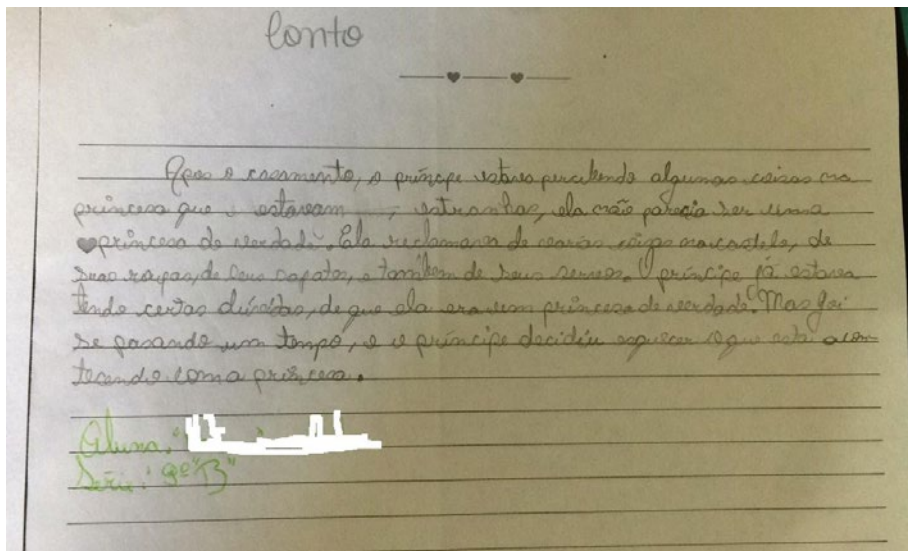 Conto
Apos o casamento, o príncipe estava percebendo algumas coisas na
princesa que estavam estranhas, ela não parecia ser uma
princesa de verdade. Ela reclamava de varias coisas no castelo, de
suas roupas, de seus sapatos, e também de seus servos. O príncipe já estava
tendo certas dúvidas, de que ela era princesa de verdade. Mas foi
se pasando um tempo, e o príncipe decidiu esquecer o que está acon
tecendo com a princesa.
Aluna:
Série: "B"